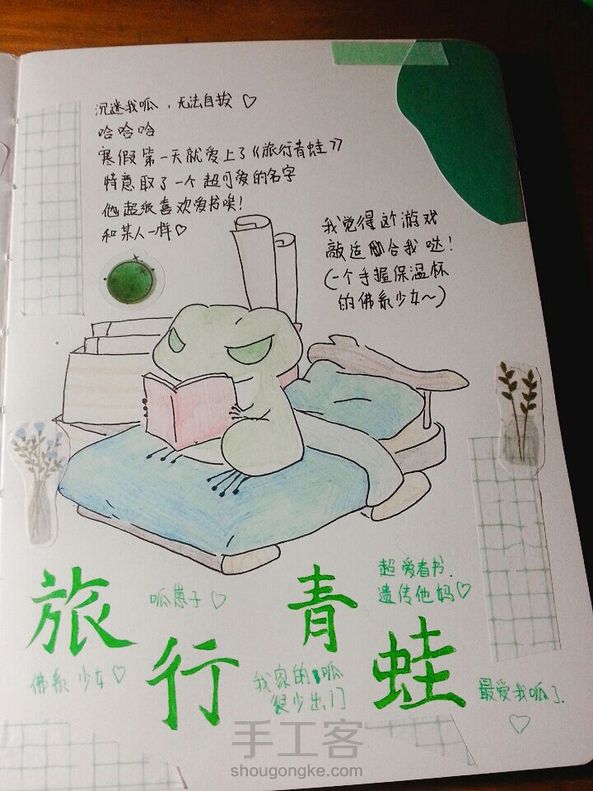 沉迷我呱，无法自拔♡
哈哈哈
寒假第一天就爱上了《旅行青蛙》
特意取了一个超可爱的名字
他超级喜欢爱书唉！
和某人一样♡
我觉得这个游戏
敲适合我哒！
(一个手握保温杯
的佛系少女~)
旅行青蛙
呱崽子♡
佛系少女♡
超爱看书.
遗传他妈♡
我家的呱
很少出门
最爱我呱了
♡
手工客
shougongke.com